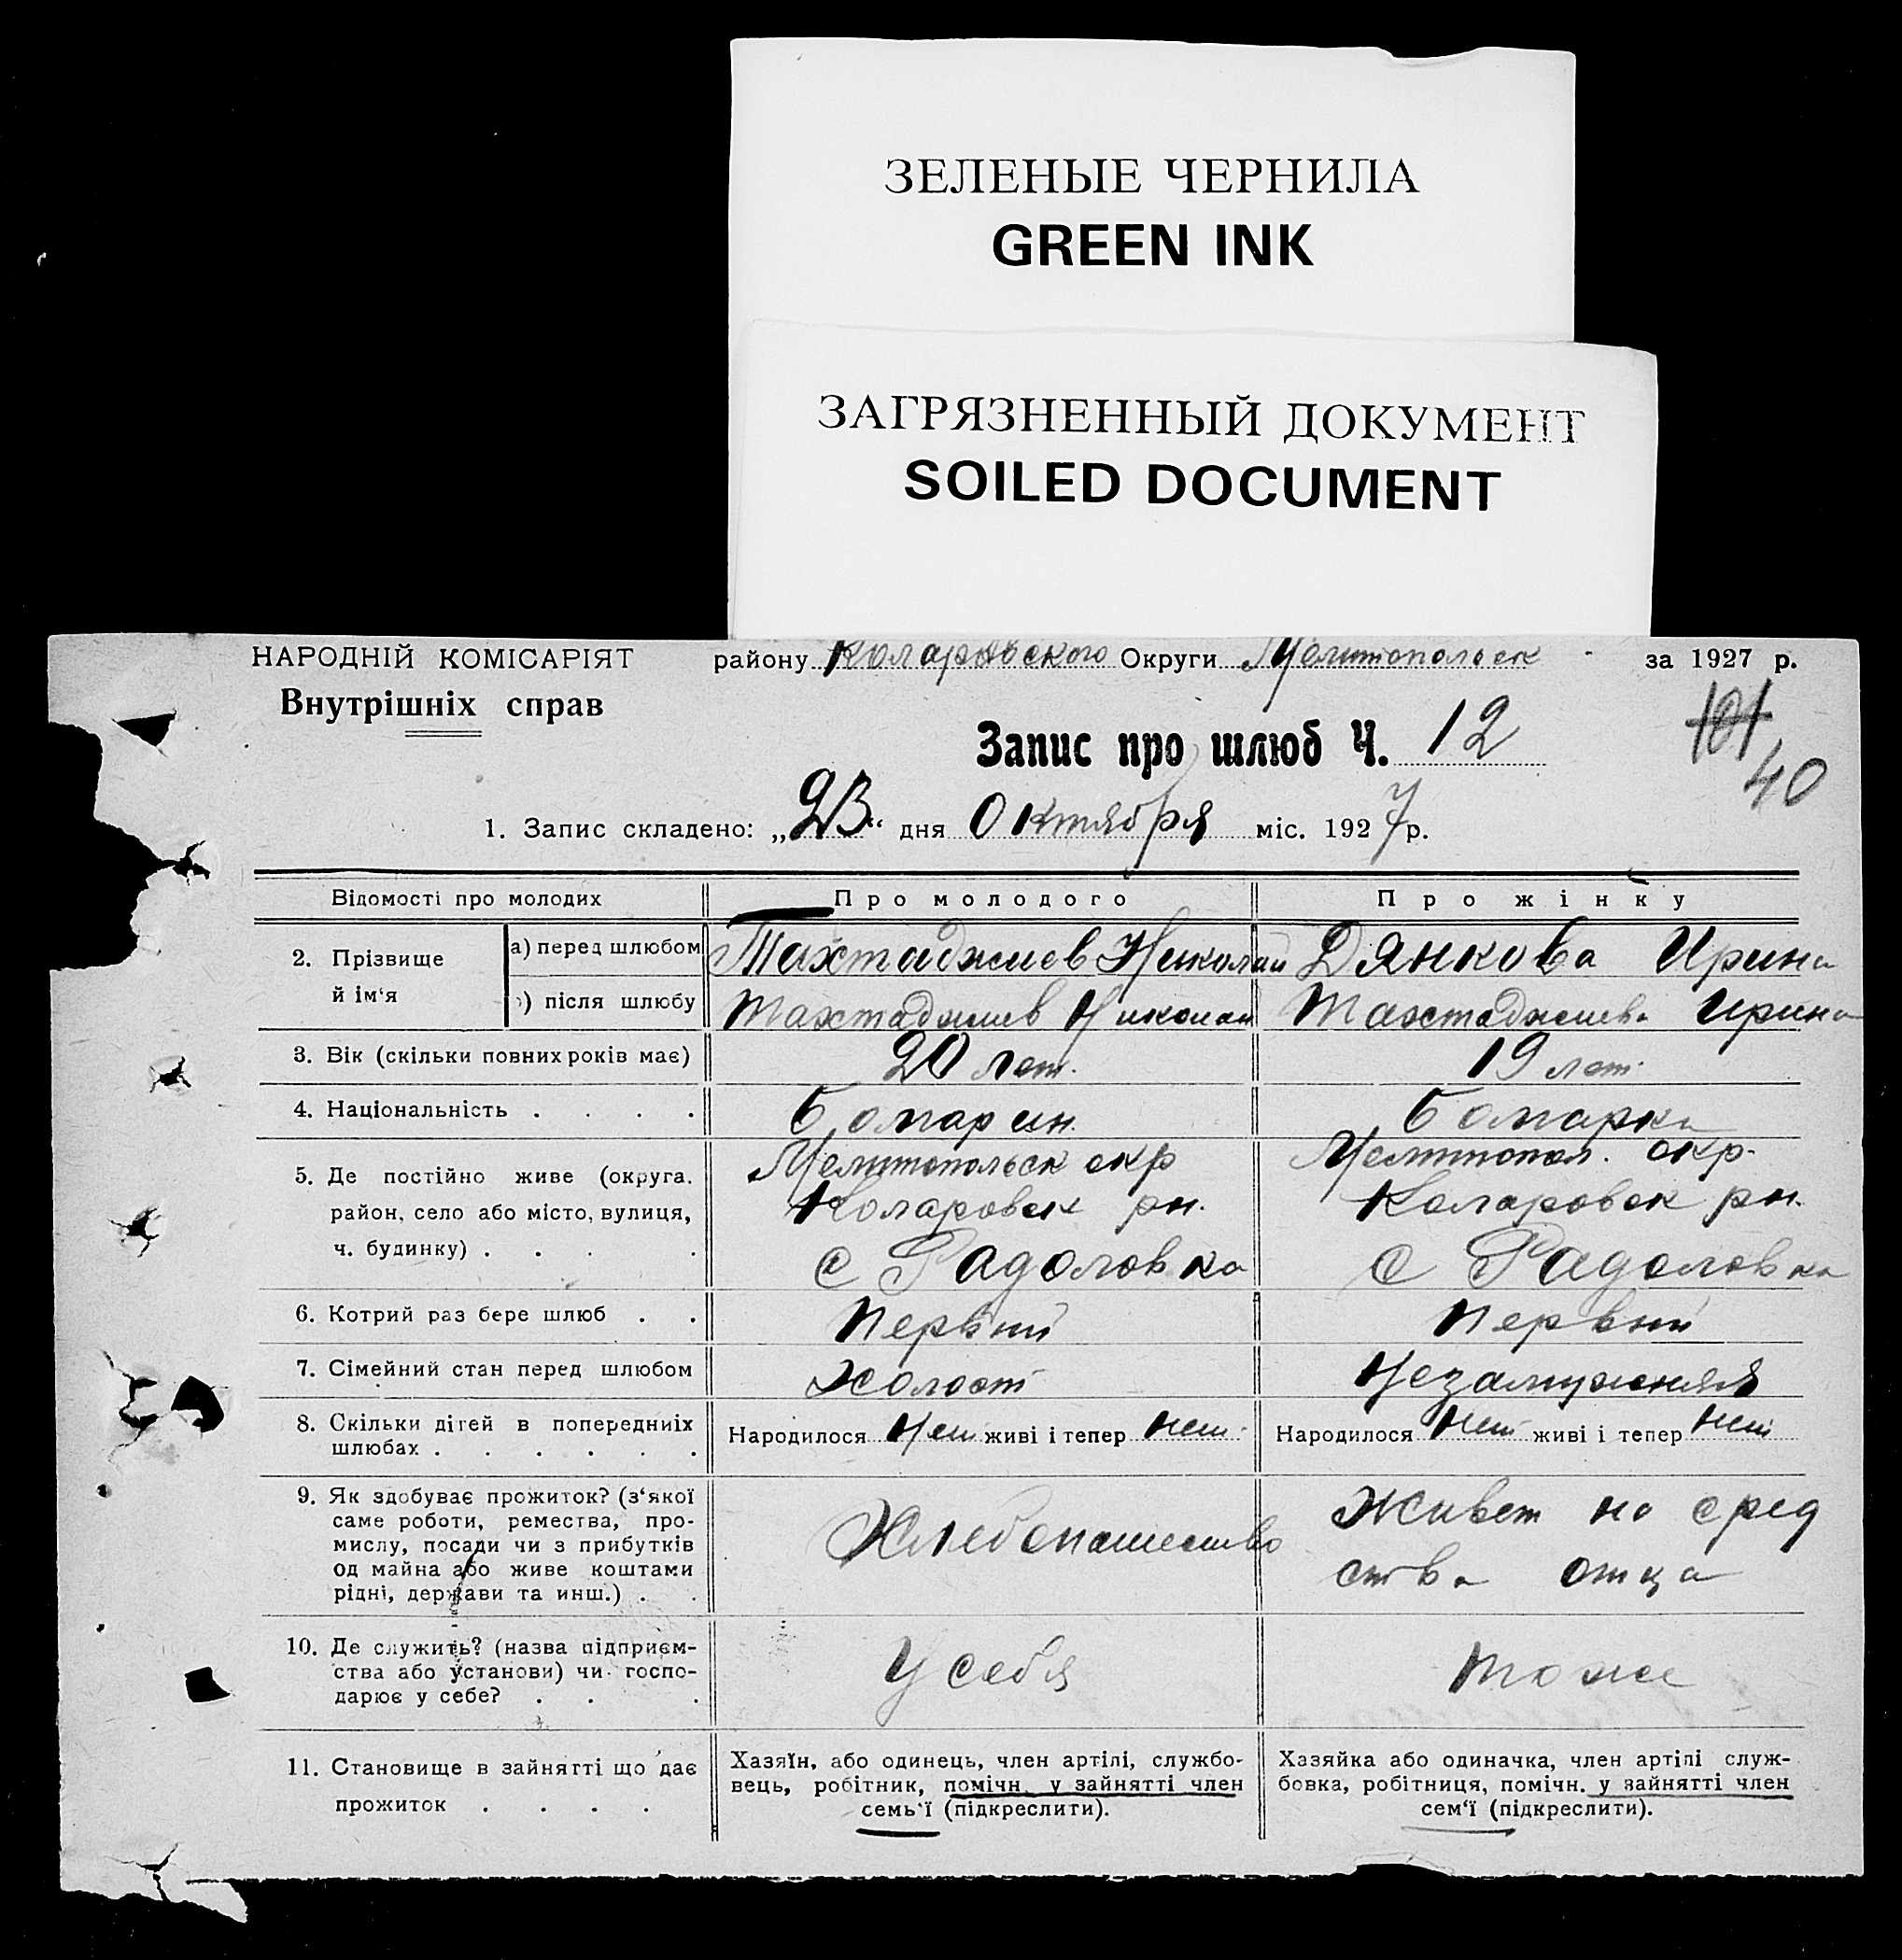 ЗЕЛЕНЫЕ ЧЕРНИЛА
GREEN INK
ЗАГРЯЗНЕННЫЙ ДОКУМЕНТ
SOILED DOCUMENT
НАРОДНІЙ КОМІСАРІЯТ району Коларовского Округи Мелитопольск за 1927 р.
Внутрішніх справ
Запис про шлюб Ч. 12
101
40
1. Запис складено: „23“ дня Октября міс. 1927 р.
Відомості про молодих Про молодого Про жінку
2. Прізвище й ім‘я а) перед шлюбом Тахтаджиев Николай Дянкова Ирина
б) після шлюбу Тахтаджиев Николай Тахтаджиева Ирина
3. Вік (скільки повних років має) 20 лет. 19 лет.
4. Національність . . . . Болгарин. Болгарка
5. Де постійно живе (округа. Мелитопольск окр Мелитопол. окр.
район, село або місто, вулиця, Коларовск рн. Коларовск рн.
ч. будинку) . . . . с Радоловка с Радоловка
6. Котрий раз бере шлюб . . Первый Первый
7. Сімейний стан перед шлюбом Холост Незамужняя
8. Скільки дітей в попередниіх Народилося Нет живі і тепер нет Народилося нет живі і тепер нет
шлюбах . . . . . .
9. Як здобуває прожиток? (з‘якої Живет на сред
саме роботи, ремества, про- Хлебопашество
мислу, посади чи з прибутків ства отца
од майна або живе коштами
рідні, держави та инш.) . .
10. Де служить? (назва підприєм- У себя тоже
ства або установи) чи госпо-
дарює у себе? . . .
11. Становище в зайнятті що дає Хазяїн, або одинець, член артілі, службо- Хазяйка або одиначка, член артілі служ-
прожиток . . . . вець, робітник, помічн. у зайнятті член бовка, робітниця, помічн. у зайнятті член
семь‘ї (підкреслити). сем‘ї (підкреслити).